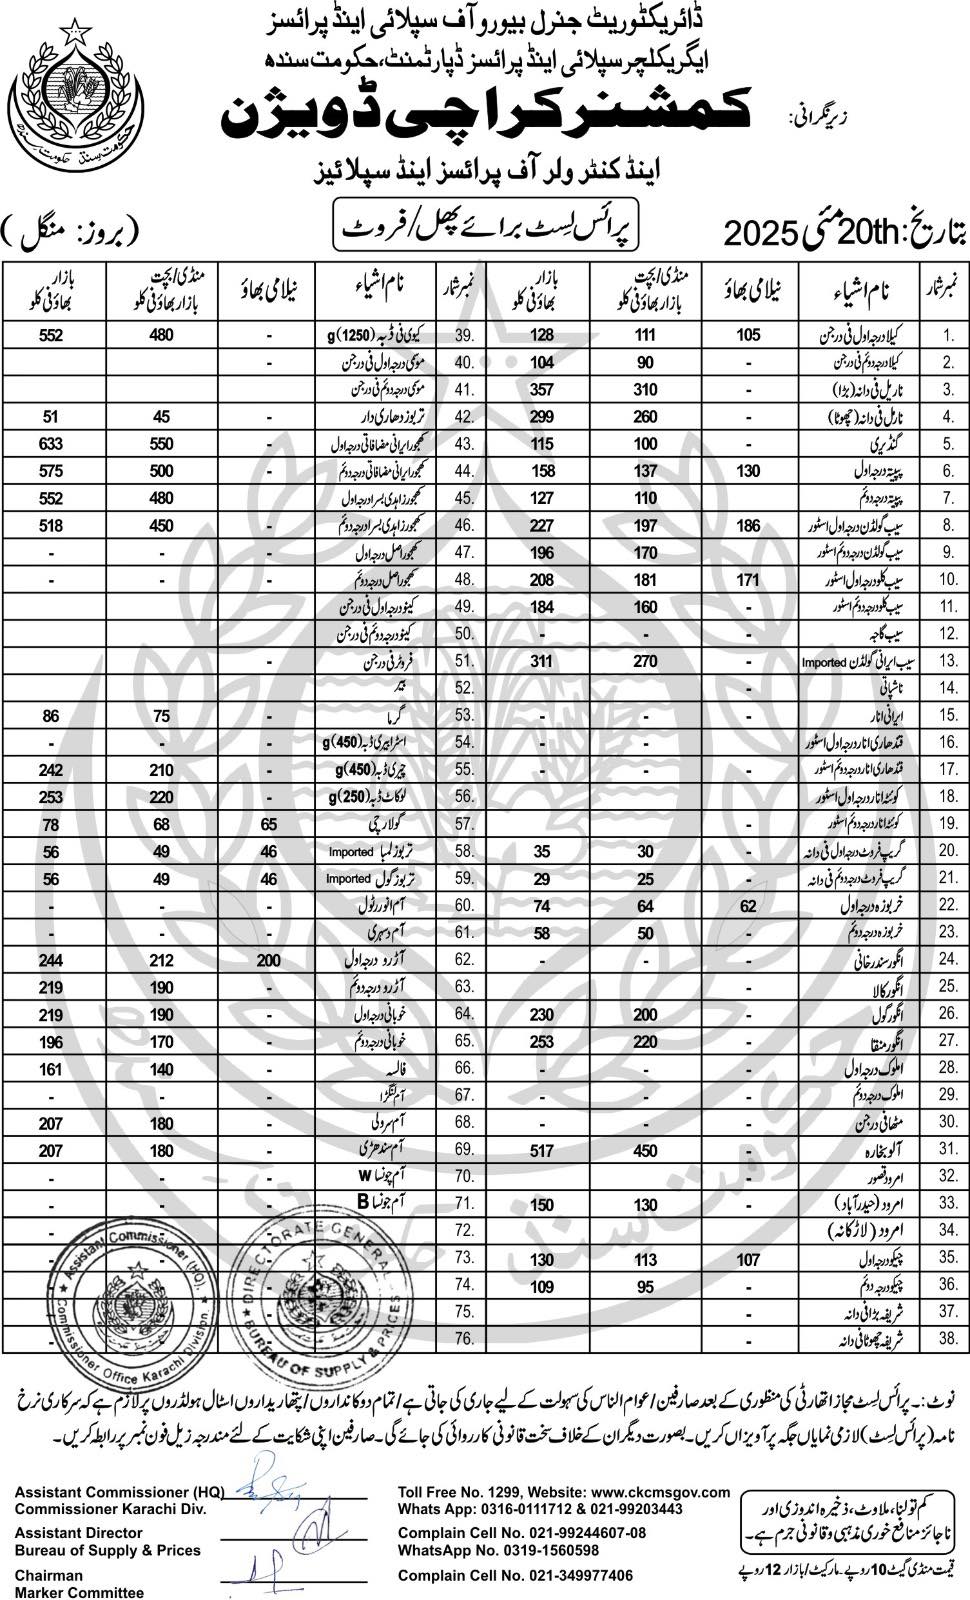 ڈائریکٹوریٹ جنرل بیورو آف سپلائی اینڈ پرائسز
ایگریکلچر سپلائی اینڈ پرائسز ڈپارٹمنٹ، حکومت سندھ
زیر نگرانی: کمشنر کراچی ڈویژن
اینڈ کنٹرولر آف پرائسز اینڈ سپلائیز
بتاریخ: 20th مئی 2025 پرائس لسٹ برائے پھل/فروٹ (بروز: منگل)
نمبر شمار نام اشیاء نیلامی بھاؤ منڈی/بچت بازار بھاؤ فی کلو بازار بھاؤ فی کلو نمبر شمار نام اشیاء نیلامی بھاؤ منڈی/بچت بازار بھاؤ فی کلو بازار بھاؤ فی کلو
1. کیلا درجہ اول فی درجن 105 111 128 39. کیوی فی ڈبہ (1250)g - 480 552
2. کیلا درجہ دوئم فی درجن - 90 104 40. موسمی درجہ اول فی درجن -
3. ناریل فی دانہ (بڑا) - 310 357 41. موسمی درجہ دوئم فی درجن
4. ناریل فی دانہ (چھوٹا) - 260 299 42. تربوز دھاری دار - 45 51
5. گنڈیری - 100 115 43. کھجور ایرانی مضافاتی درجہ اول - 550 633
6. پپیتہ درجہ اول 130 137 158 44. کھجور ایرانی مضافاتی درجہ دوئم - 500 575
7. پپیتہ درجہ دوئم - 110 127 45. کھجور زاہدی بسرا درجہ اول - 480 552
8. سیب گولڈن درجہ اول اسٹور 186 197 227 46. کھجور زاہدی بسرا درجہ دوئم - 450 518
9. سیب گولڈن درجہ دوئم اسٹور - 170 196 47. کھجور اصل درجہ اول - - -
10. سیب کلو درجہ اول اسٹور 171 181 208 48. کھجور اصل درجہ دوئم - - -
11. سیب کلو درجہ دوئم اسٹور - 160 184 49. کینو درجہ اول فی درجن -
12. سیب گاجہ - - - 50. کینو درجہ دوئم فی درجن
13. سیب ایرانی گولڈن Imported - 270 311 51. فروٹر فی درجن -
14. ناشپاتی - 52. بیر
15. ایرانی انار - - - 53. گرما - 75 86
16. قندھاری انار درجہ اول اسٹور - - - 54. اسٹرابیری ڈبہ (450)g - - -
17. قندھاری انار درجہ دوئم اسٹور - - - 55. چیری ڈبہ (450)g - 210 242
18. کوئٹہ انار درجہ اول اسٹور - 56. لوکاٹ ڈبہ (250)g - 220 253
19. کوئٹہ انار درجہ دوئم اسٹور - 57. گولارچی 65 68 78
20. گریپ فروٹ درجہ اول فی دانہ - 30 35 58. تربوز لمبا Imported 46 49 56
21. گریپ فروٹ درجہ دوئم فی دانہ - 25 29 59. تربوز گول Imported 46 49 56
22. خربوزہ درجہ اول 62 64 74 60. آم انور رٹول - - -
23. خربوزہ درجہ دوئم - 50 58 61. آم دسہری - - -
24. انگور سندرخانی - - - 62. آڑو درجہ اول 200 212 244
25. انگور کالا - 63. آڑو درجہ دوئم - 190 219
26. انگور گول - 200 230 64. خوبانی درجہ اول - 190 219
27. انگور منقا - 220 253 65. خوبانی درجہ دوئم - 170 196
28. املوک درجہ اول - - - 66. فالسہ - 140 161
29. املوک درجہ دوئم - - - 67. آم لنگڑا - - -
30. مٹھا فی درجن - - - 68. آم سرولی - 180 207
31. آلو بخارہ - 450 517 69. آم سندھڑی - 180 207
32. امرود قصور - 70. آم چونسا W - - -
33. امرود (حیدرآباد) - 130 150 71. آم چونسا B - - -
34. امرود (لاڑکانہ) 72. -
35. چیکو درجہ اول 107 113 130 73. -
36. چیکو درجہ دوئم - 95 109 74. -
37. شریفہ بڑا فی دانہ - 75. -
38. شریفہ چھوٹا فی دانہ - 76. -
Assistant Commissioner (HQ)
Commissioner Office Karachi Division
DIRECTORATE GENERAL
BUREAU OF SUPPLY & PRICES
نوٹ:۔ پرائس لسٹ مجاز اتھارٹی کی منظوری کے بعد صارفین/عوام الناس کی سہولت کے لیے جاری کی جاتی ہے/تمام دوکانداروں/پتھاریداروں اسٹال ہولڈروں پر لازم ہے کہ سرکاری نرخ
نامہ (پرائس لسٹ) لازمی نمایاں جگہ پر آویزاں کریں۔ بصورت دیگر ان کے خلاف سخت قانونی کارروائی کی جائے گی۔ صارفین اپنی شکایت کے لئے مندرجہ زیل فون نمبر پر رابطہ کریں۔
Assistant Commissioner (HQ)
Commissioner Karachi Div.
Assistant Director
Bureau of Supply & Prices
Chairman
Marker Committee
Toll Free No. 1299, Website: www.ckcmsgov.com
Whats App: 0316-0111712 & 021-99203443
Complain Cell No. 021-99244607-08
WhatsApp No. 0319-1560598
Complain Cell No. 021-349977406
کم تولنا، ملاوٹ، ذخیرہ اندوزی اور
ناجائز منافع خوری مذہبی و قانونی جرم ہے۔
قیمت منڈی گیٹ 10 روپے۔ مارکیٹ/بازار 12 روپے